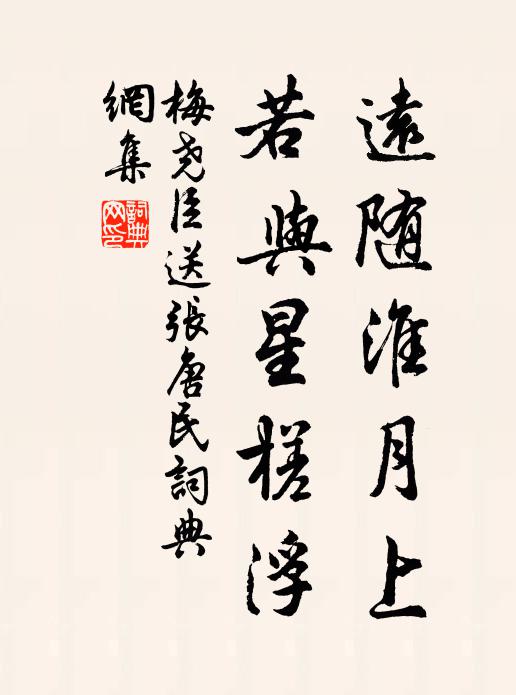 遠随淮月上
若與星槎浮
梅尧臣送張唐民詞典
網集
詞典
网印